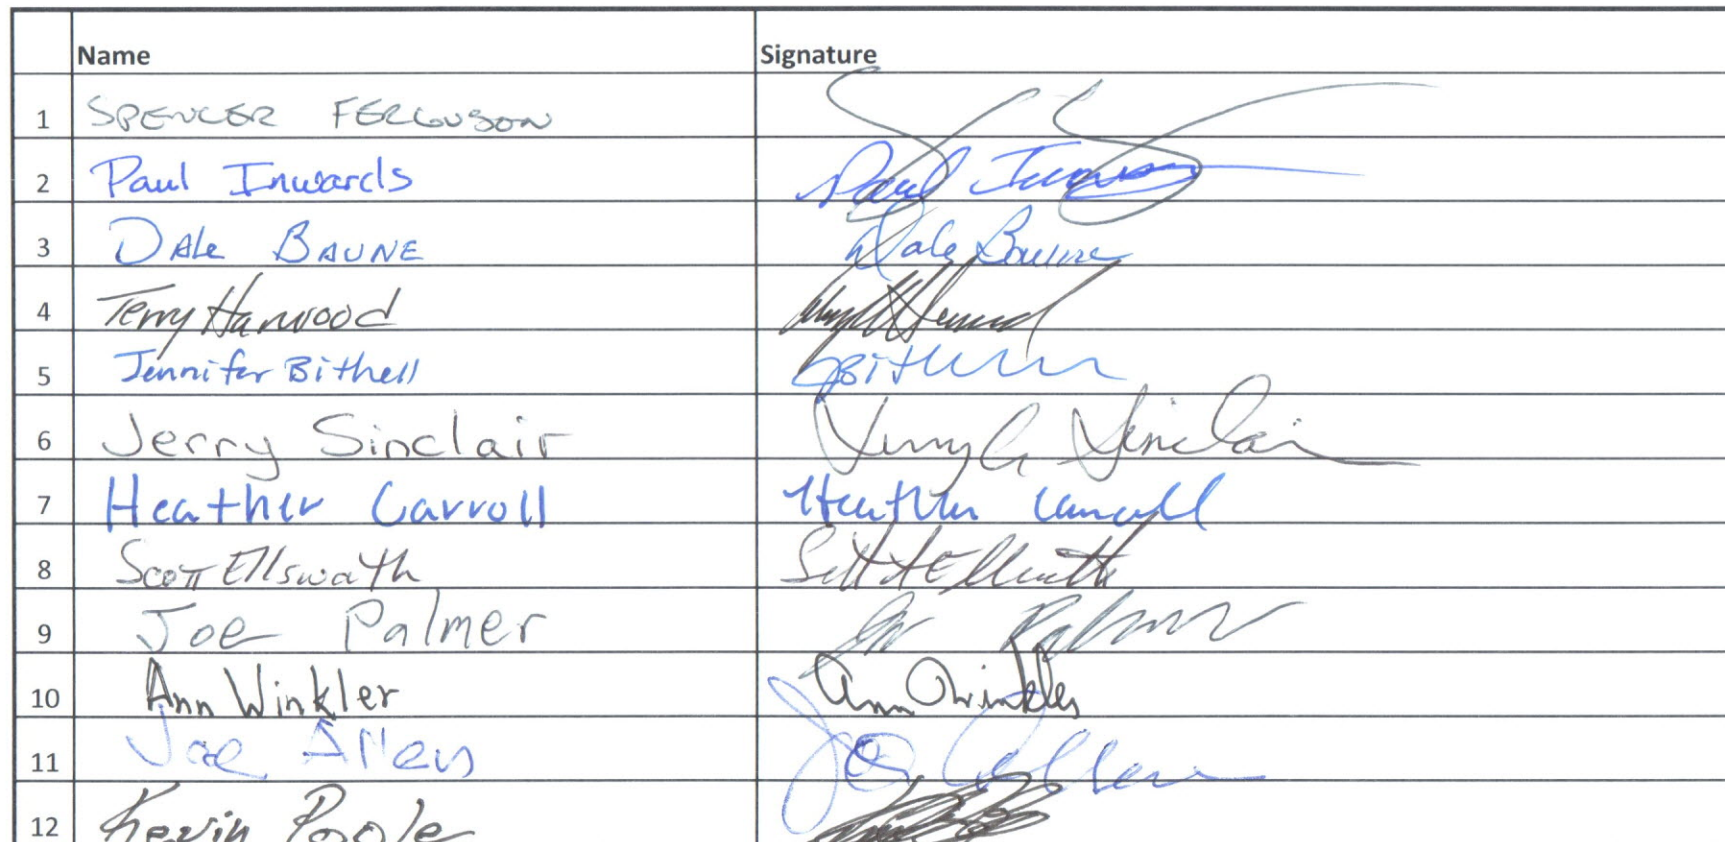 Name Signature
1 SPENCER FERGUSON
2 Paul Inwards Paul
3 DALE BAUNE Dale Baune
4 Terry Harwood
5 Jennifer Bithell
6 Jerry Sinclair Sinclair
7 Heather Carroll Heather Carroll
8 Scott Ellsworth
9 Joe Palmer Palmer
10 Ann Winkler Ann Winkler
11 Joe Allen Joe Allen
12 Kevin Poole